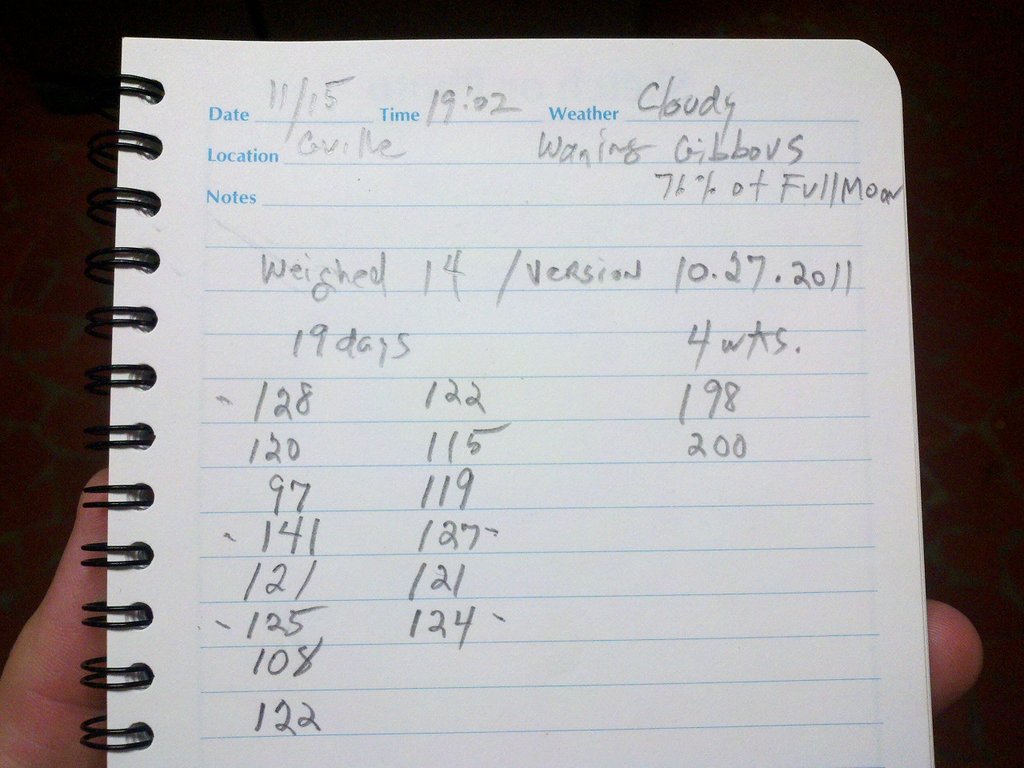 Date 11/15 Time 19:02 Weather Cloudy
Location Gville Waning Gibbous
76% of Full Moon
Notes
Weighed 14 / Version 10.27.2011
19 days 4 wks.
- 128 122 198
120 115 200
97 119
- 141 127 -
121 121
- 125 124 -
108
122